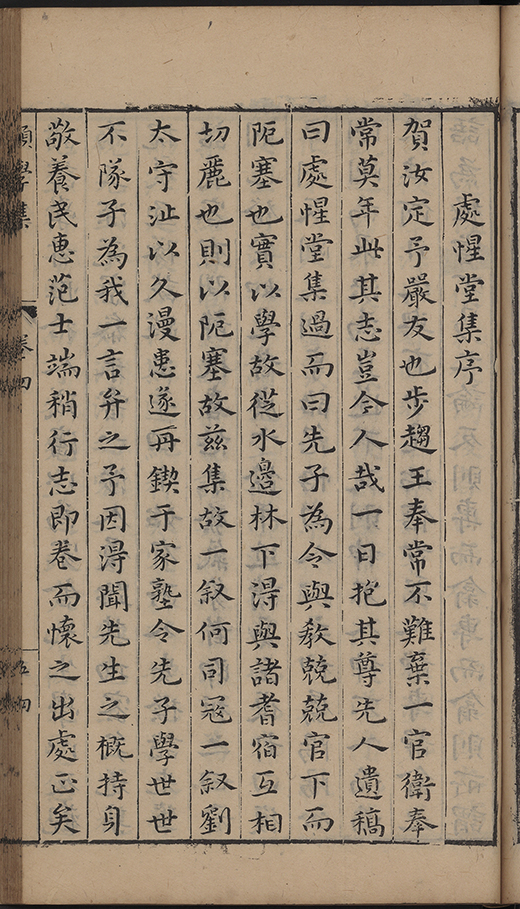 處惺堂集序
賀汝定予嚴友也步趨王奉常不難棄一官衛奉
常莫年此其志豈今人哉一日抱其尊先人遺稿
曰處惺堂集過而曰先子為令與教兢兢官下而
阨塞也實以學故從水邊林下得與諸耆宿互相
切麗也則以阨塞故茲集故一叙何司冦一叙劉
太守沚以久漫患遂再鍥于家塾令先子學世世
不隊子為我一言弁之予因得聞先生之概持身
敬養民惠范士端稍行志即卷而懷之出處正矣
學集
卷四